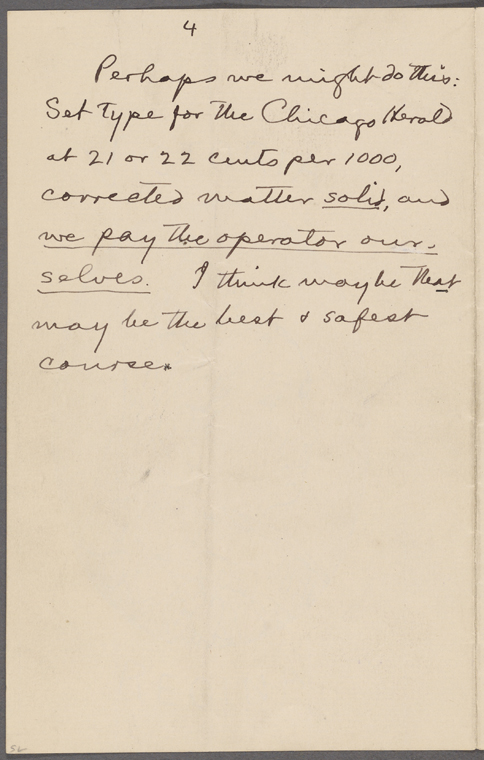 4
Perhaps we might do this:
Set type for the Chicago Herald
at 21 or 22 cents per 1000,
corrected matter solid, and
we pay the operator our-
selves. I think maybe that
may be the best & safest
course.